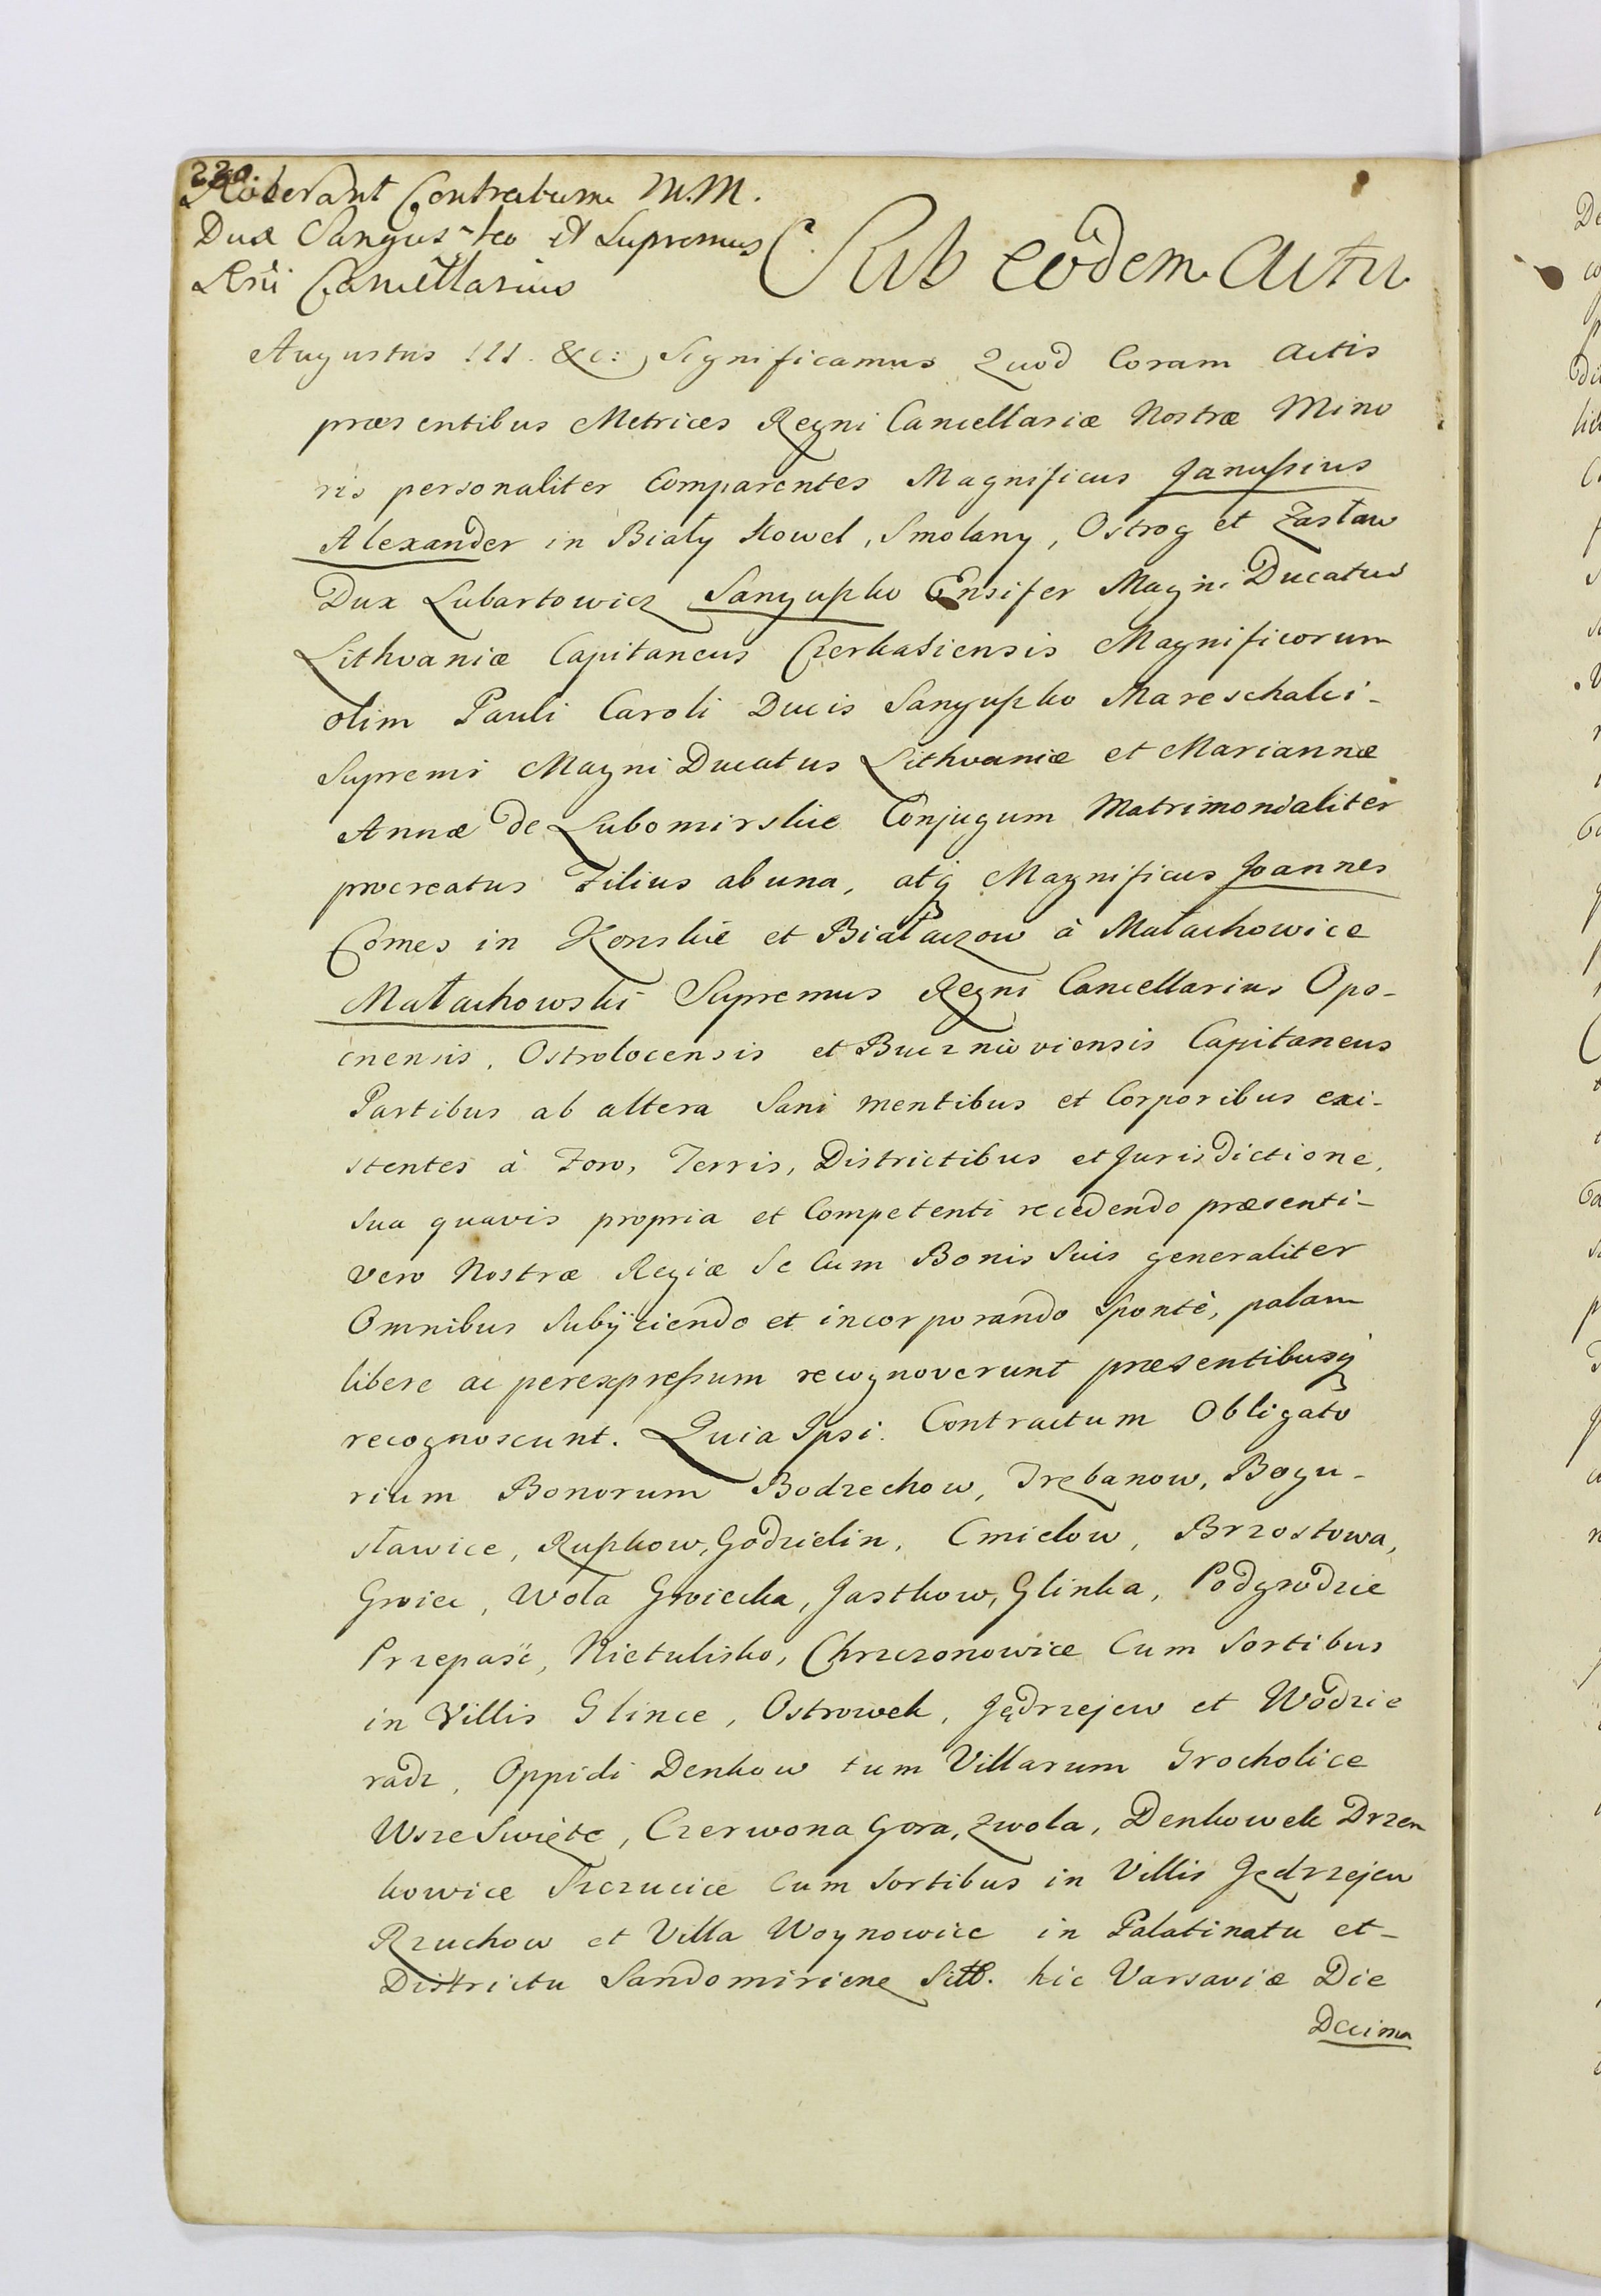 220.
Roborant Contractum M.M.
Dux Sangusz-ko et Supremus
Rni Cancellarius
Sub eodem actu
Augustus III. &c: Significamus Quod Coram Actis
præsentibus Metrices Regni Cancellariæ Nostræ Mino
ris personaliter Comparentes Magnificus Janußius
Alexander in Biały Kowel, Smolany, Ostrog et Zasław
Dux Lubartowicz Sanguszko Ensifer Magni Ducatus
Lithvaniæ Capitaneus Czerkasiensis Magnificorum
olim Pauli Caroli Ducis Sanguszko Mareschalci-
Supremi Magni Ducatus Lithvaniæ et Mariannæ
Annæ de Lubomirskie Conjugum Matrimonialiter
procreatus Filius ab una, atq Magnificus Joannes
Comes in Konskie et Białaczow à Małachowice
Małachowski Supremus Regni Cancellarius Opo-
cnensis, Ostrolocensis et Capitaneus
Partibus ab altera Sani mentibus et Corporibus exi-
stentes à Foro, Terris, Districtibus et Jurisdictione,
sua quavis propria et Competenti recedendo præsenti-
vero Nostræ Regiæ Se Cum Bonis Suis generaliter
Omnibus Subijciendo et incorporando Spontè, palam
libere ac perexpreßum recognoverunt præsentibusq
recognoscunt. Quia Ipsi Contractum Obligato
rium Bonorum Bodzechow, Trębanow, Bogu-
sławice, Ruszkow, Godzielin, Cmielow, Brzostowa,
Groiec, Wola Groiecka, Jastkow, Glinka, Podgrodzie
Przepaść, Nietulisko, Chrzczonowice Cum Sortibus
in Villis Glince, Ostrowek, Jędrzejew et Wodzie
radz, Oppidi Denkow tum Villarum Grocholice
Wsze Swięte, Czerwona Gora, Zwola, Denkowek Drzen
kowice Szczucice Cum Sortibus in Villis Jędrzejew
Rzuchow et Villa Woynowice in Palatinatu et-
Districtu Sandomirieñ Sitt. hic Varsaviæ Die
Decima